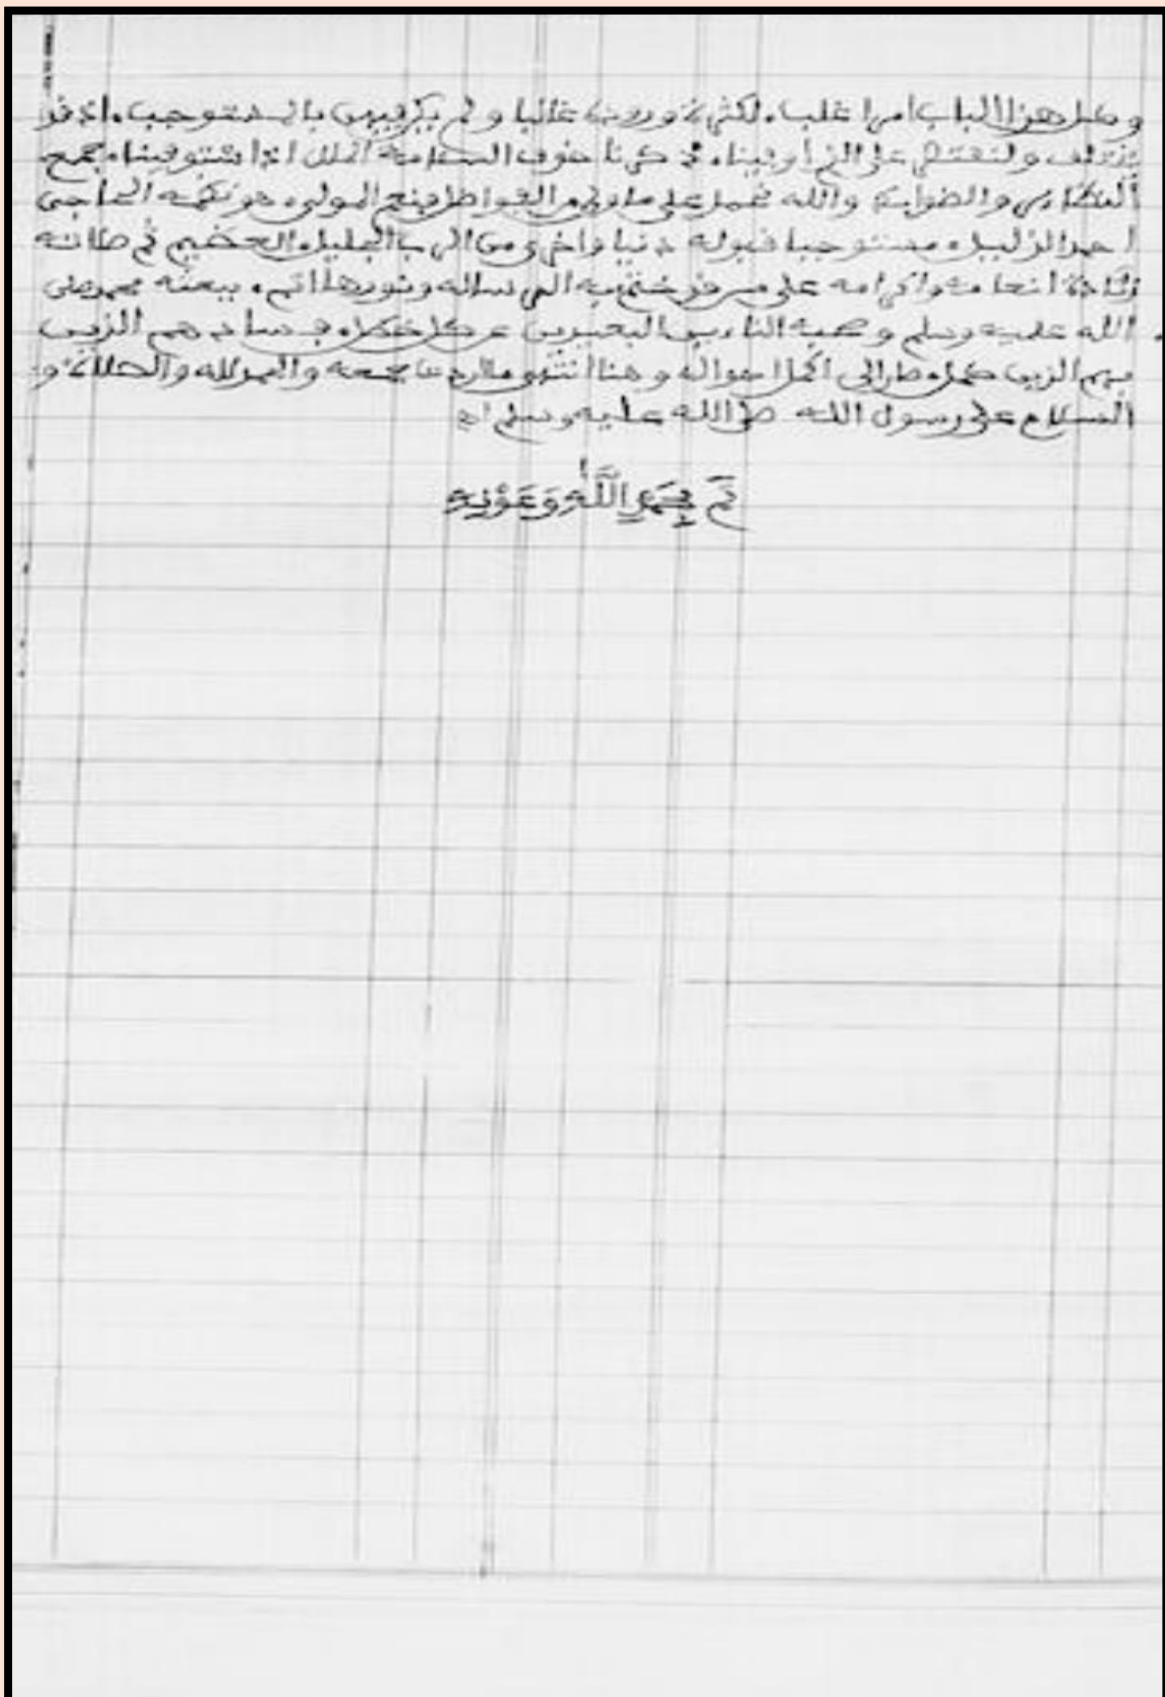 وكل هذا الباب امرا غلب لكثرة وروده غالبا ولم يكن فيهن بالمستوجب اذ قد
يختلف ولنقتصر على الذ اوفينا ذكرنا خوف السئامة الملل اذا استوفينا جمع
والضوابط والله نحمد على ما من المولى هو نظمه الحاجى
احمد الذليل مستوجبا قبوله دنيا واخرى من الرب الجليل العظيم ثم صلاته
زيادة انعامه واكرامه على من قد ختم به الرسالة ونورها اتم ببعثه محمد صلى
الله عليه وسلم وصحبه عن كل فساد هم الذين
بهم الدين كمل صار الى اكمل احواله وهنا انتهى ما اردنا جمعه والحمد لله والصلاة و
السلام على رسول الله صلى الله عليه وسلم اه
تَمَّ بِحَمْدِ اللَّهِ وَعَوْنِهِ